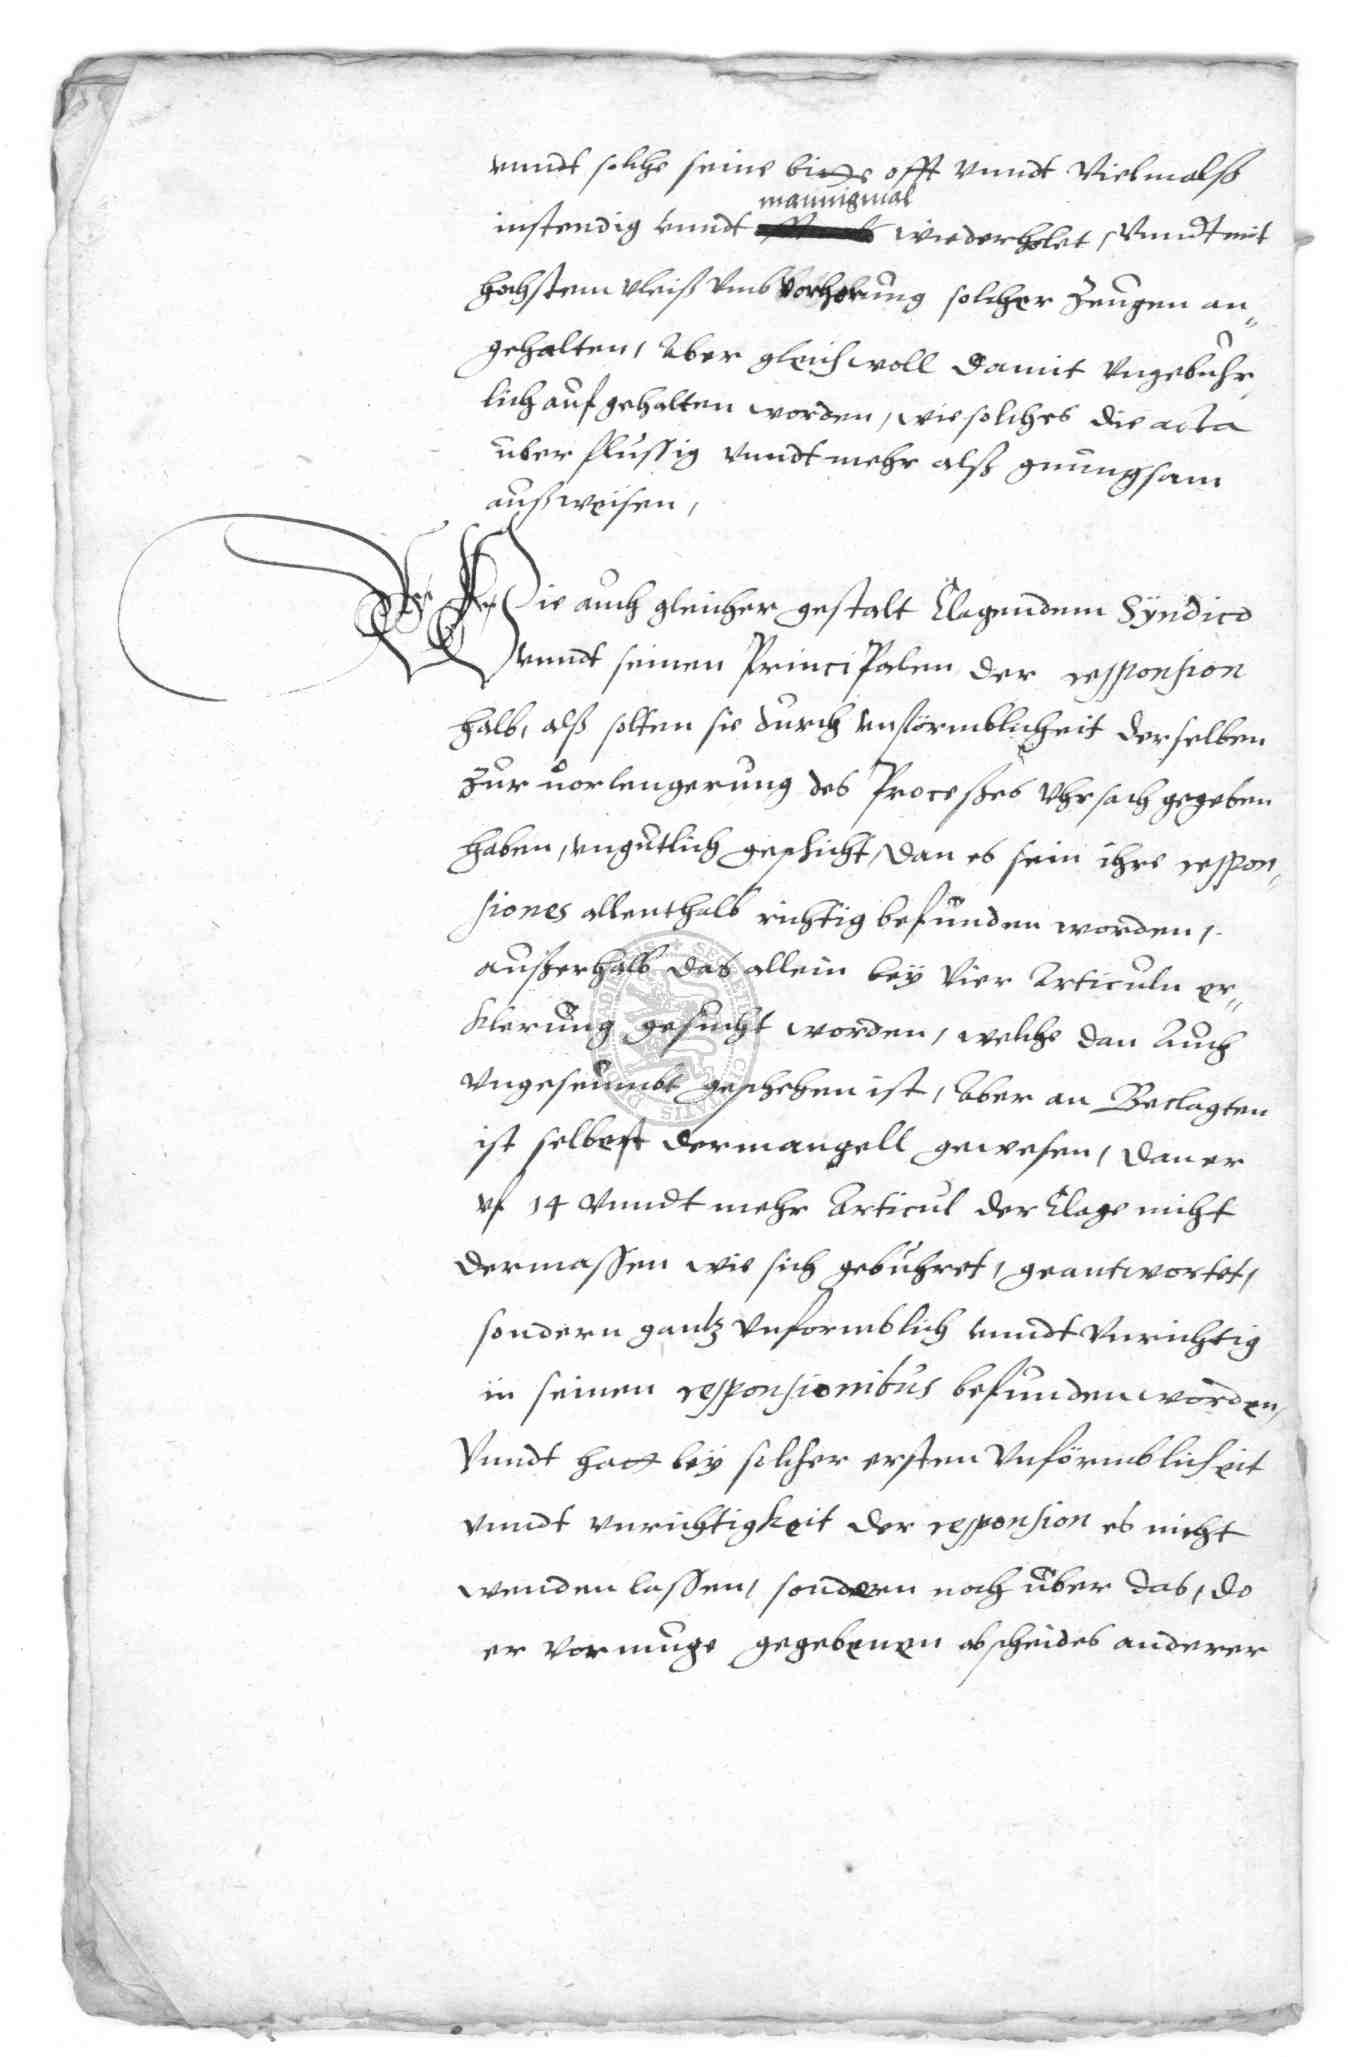 vnndt solche seine bitte offt vnndt Vielmalß
mannigmal
instendig vnndt wiederholet, Vnndt mit
hochstem vleiß vmb Vorhorung solcher Zeugen an„
gehalten, Aber gleichwoll damit vngebuhr„
lich aufgehalten worden, wie solches die acta
uberflussig vnndt mehr alß gnungsam
außweisen,
Wie auch gleicher gestalt Clagendem Sÿndico
vnndt seinen Principalen der responsion
halb, alß solten sie durch vnförmblicheit derselben
Zur uorlengerung des Proceßes Vhrsach gegeben
haben, vngutlich geschicht, dan es sein ihre respon„
siones allenthalb richtig befunden worden,
außerhalb das allein beÿ Vier Articuln er„
klerung gesucht worden, welche dan Auch
vngeseumbt geschehen ist, Aber an Beclagten
ist selbest der mangell gewesen, dan er
vf 14 vnndt mehr Articul der Clage nicht
dermassen wie sich gebuhret, geantwortet,
sondern gantz vnformblich vnndt Vnrichtig
in seinen responsionibus befunden worden,
Vnndt hatt beÿ solcher ersten Vnförmblicheit
vnndt vnrichtigkeit der responsion es nicht
wenden lassen, sondern noch über das, do
er vormuge gegebenen abscheides anderer